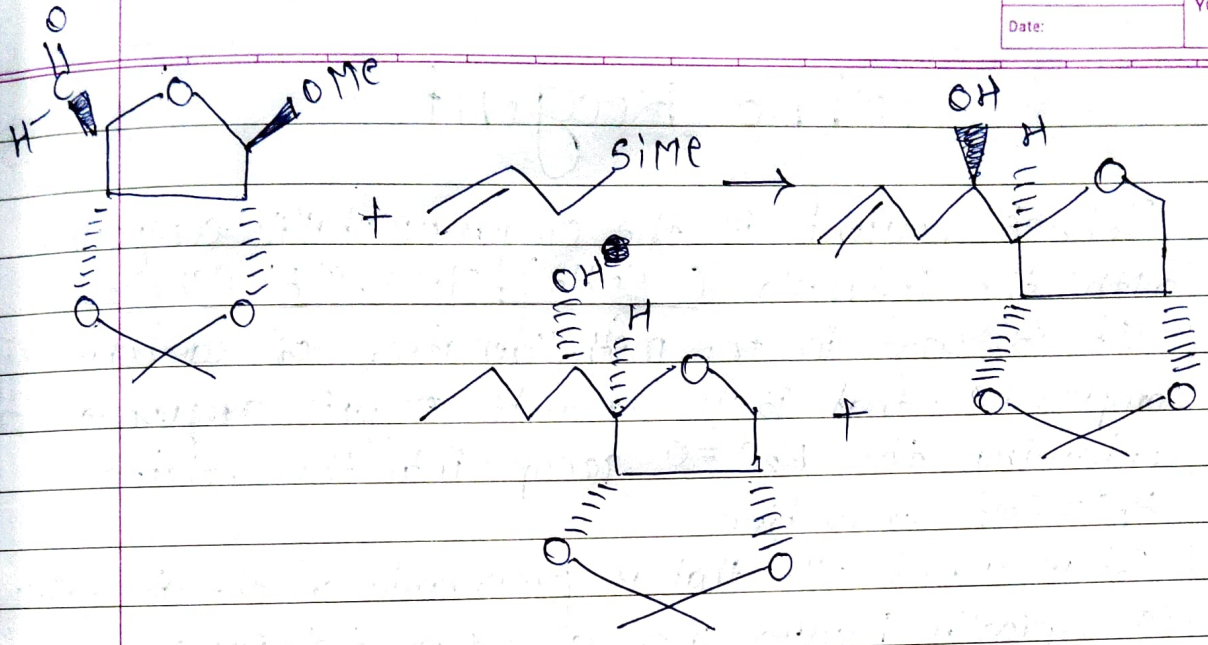 Date:
Y
O
C
H
O
OMe
SiMe
+
OH
H
O
O
O
OH
H
O
+
O
O
O
O